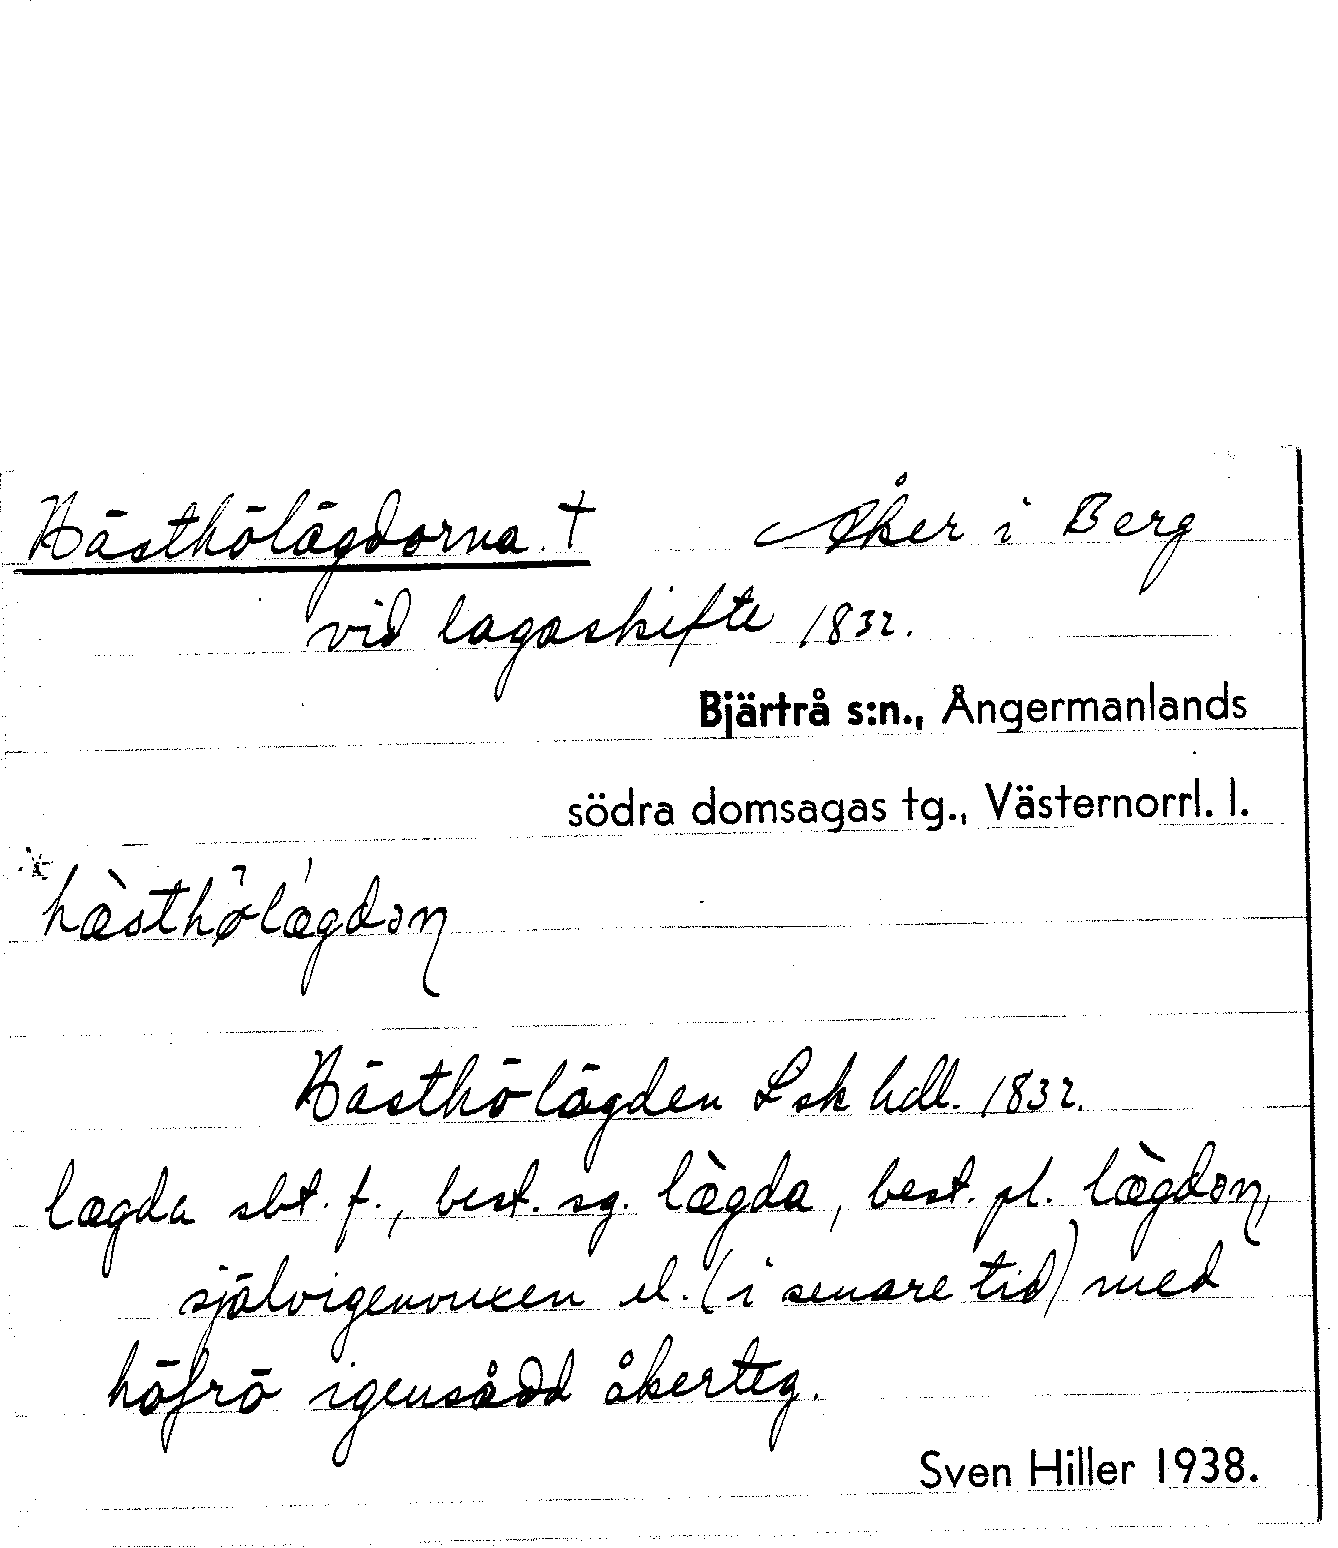 Hästhölägdorna. † Åker i Berg
vid lagaskifte 1832.
Bjärtrå s:n., Ångermanlands
södra domsagas tg., Västernorrl. l.
*hæ̀sthø̄lǽgdɔn
Hästhölägden Lsk hdl. 1832.
lægda sbt. f., best. sg. læ̀gda, best. pl. læ̀gdɔn,
självigenvuxen el. (i senare tid) med
höfrö igensådd åkerteg.
Sven Hiller 1938.